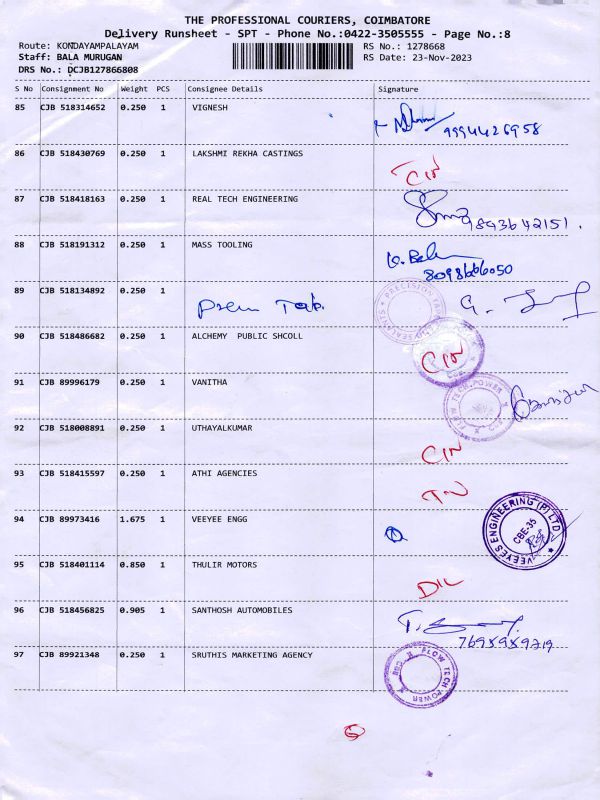 THE PROFESSIONAL COURIERS, COIMBATORE
Delivery Runsheet - SPT - Phone No.:0422-3505555 - Page No.:8
Route: KONDAYAMPALAYAM RS No.: 1278668
Staff: BALA MURUGAN RS Date: 23-Nov-2023
DRS No.: DCJB127866808
S No Consignment No Weight PCS Consignee Details Signature
85 CJB 518314652 0.250 1 VIGNESH
9994426958
86 CJB 518430769 0.250 1 LAKSHMI REKHA CASTINGS
87 CJB 518418163 0.250 1 REAL TECH ENGINEERING
9893642151.
88 CJB 518191312 0.250 1 MASS TOOLING
8098666050
89 CJB 518134892 0.250 1
PRECISION
90 CJB 518486682 0.250 1 ALCHEMY PUBLIC SHCOLL
91 CJB 89996179 0.250 1 VANITHA
FLOW TECH POWER
92 CJB 518008891 0.250 1 UTHAYALKUMAR
93 CJB 518415597 0.250 1 ATHI AGENCIES
94 CJB 89973416 1.675 1 VEEYEE ENGG
VEEYES ENGINEERING (P) LTD
CBE-35
95 CJB 518401114 0.850 1 THULIR MOTORS
96 CJB 518456825 0.905 1 SANTHOSH AUTOMOBILES
97 CJB 89921348 0.250 1 SRUTHIS MARKETING AGENCY
FLOW TECH POWER